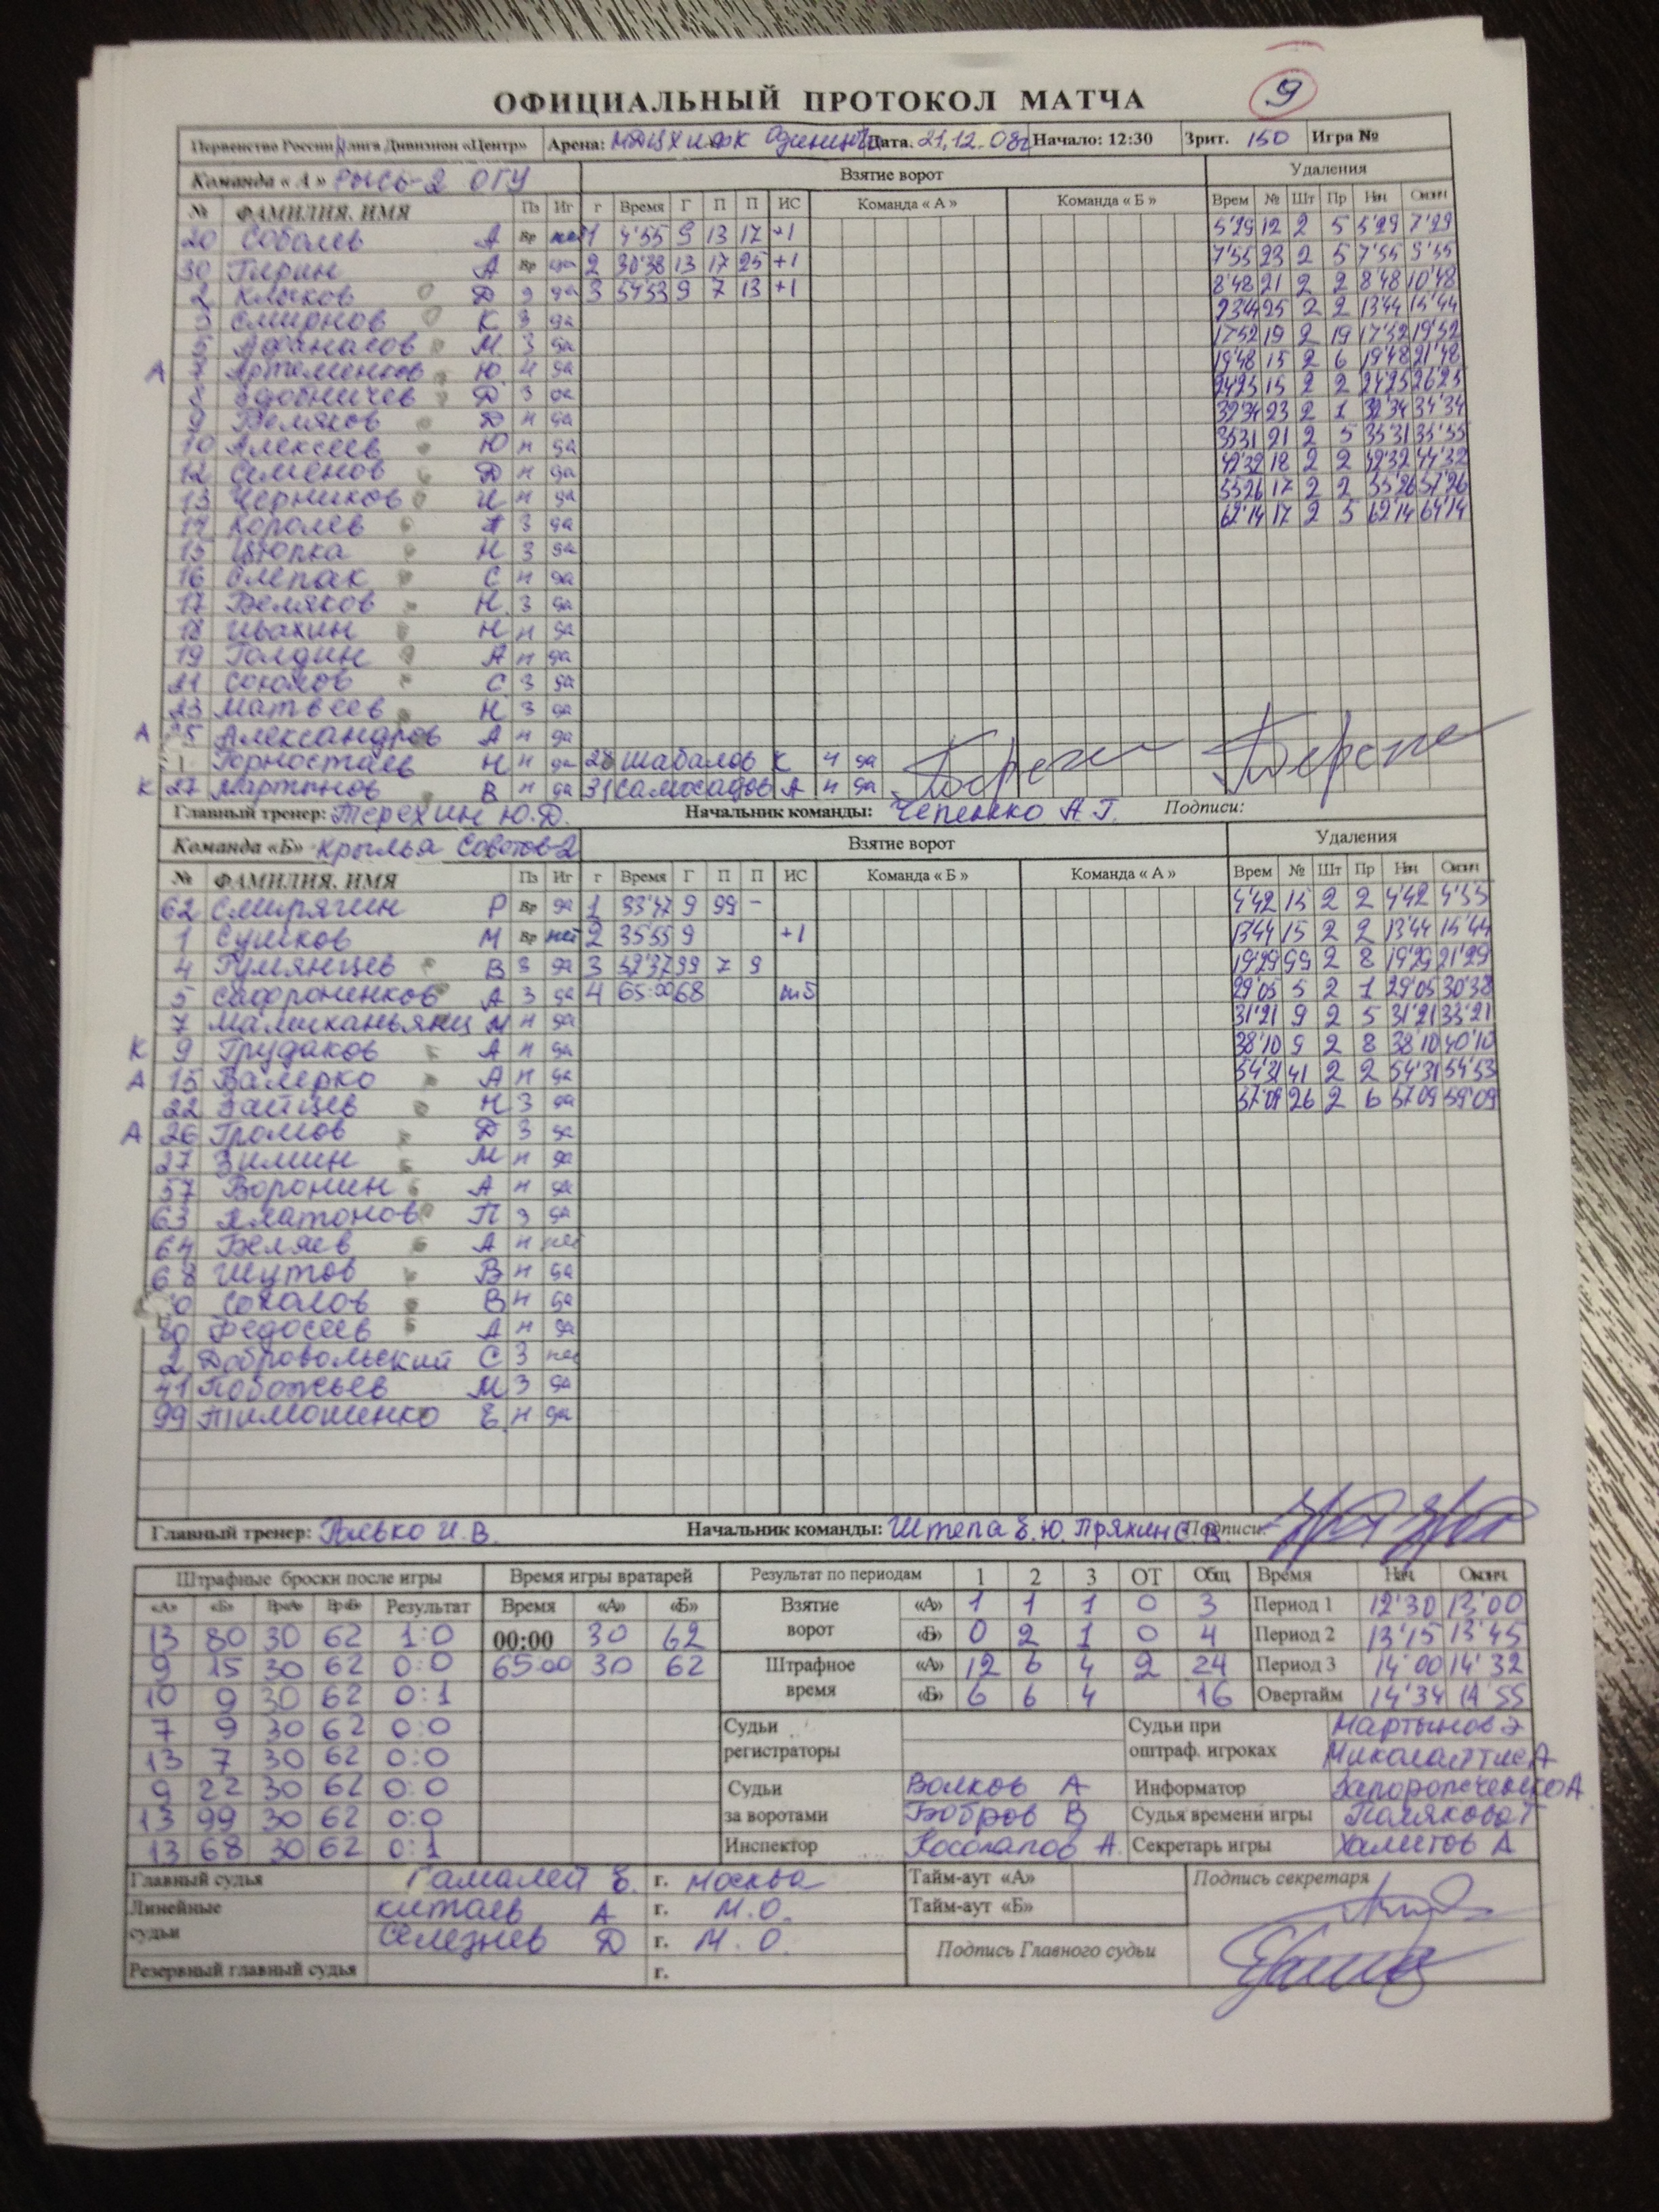 ОФИЦИАЛЬНЫЙ ПРОТОКОЛ МАТЧА 9
Первенство России лига Дивизион «Центр» Арена: Дата. 21.12.08г Начало: 12:30 Зрит. 150 Игра №
Команда « А » Рысь-2 ОГУ Взятие ворот Удаления
№ ФАМИЛИЯ, ИМЯ Пз Иг г Время Г П П ИС Команда « А » Команда « Б » Врем № Шт Пр Нач Оконч
20 Соболев А Вр нет 1 4'55 9 13 17 +1 5'29 12 2 5 5'29 7'29
30 Гирин А Вр да 2 30'38 13 17 25 +1 7'55 23 2 5 7'55 9'55
2 Клыков Д да 3 54'53 9 7 13 +1 8'48 21 2 2 8'48 10'48
3 Смирнов К 3 да 25 2 2 13'44 15'44
5 Афанасов М 3 да 17'52 19 2 19 17'52 19'52
А 7 Артеменков Ю н да 19'48 15 2 6 19'48 21'48
8 Здобничев Д 3 да 24'23 15 2 2 24'23 26'23
9 Беляков Д н да 32'34 23 2 1 32'34 34'34
10 Алексеев Ю н да 35'31 21 2 5 35'31 35'55
12 Семенов Д н да 42'32 18 2 2 42'32 44'32
13 Черников И н да 55'26 17 2 2 55'26 57'26
14 Королев 3 да 62'14 17 2 5 62'14 64'14
15 Цюпка Н 3 да
16 Слепак С н да
17 Беляков Н. 3 да
18 Ивахин Н н да
19 Голдин А н да
21 Соколов С 3 да
23 Матвеев Н 3 да
А 25 Александров А н да
Горностаев Н н да 28 Шабалов К н да
К 27 Мартынов В н да 31 Самосадов А н да
Главный тренер: Терехин Ю.Д. Начальник команды: Чепенко А.Г. Подписи:
Команда «Б» Крылья Советов-2 Взятие ворот Удаления
№ ФАМИЛИЯ, ИМЯ Пз Иг г Время Г П П ИС Команда « Б » Команда « А » Врем № Шт Пр Нач Оконч
62 Смирягин Р Вр да 1 33'47 9 99 - 4'42 15 2 2 4'42 4'55
1 Сушков М Вр нет 2 35'55 9 +1 13'44 15 2 2 13'44 15'44
4 Румянцев В 3 да 3 52'37 99 7 9 19'29 99 2 8 19'29 21'29
5 Сафроненков А 3 да 4 65:00 68 29'05 5 2 1 29'05 30'38
7 М н да 31'21 9 2 5 31'21 33'21
К 9 Грудаков А н да 38'10 9 2 8 38'10 40'10
А 15 Валерко А н да 54'31 41 2 2 54'31 54'53
22 Зайцев Н 3 да 57'09 26 2 6 57'09 59'09
А 26 Громов Д 3 да
27 Зимин М н да
57 Воронин А н да
63 Платонов П 3 да
64 Беляев А н нет
68 Шутов В н да
Соколов В н да
80 Федосеев А н да
2 Добровольский С 3 нет
41 Побожьев М 3 да
99 Тимошенко Е. н да
Главный тренер: И.В. Начальник команды: Штепа Е.Ю. Пряхин С.В. Подписи:
Штрафные броски после игры Время игры вратарей Результат по периодам 1 2 3 ОТ Общ Время Нач Оконч
«А» «Б» Вр«А» Вр«Б» Результат Время «А» «Б» Взятие ворот «А» 1 1 1 0 3 Период 1 12'30 13'00
13 80 30 62 1:0 00:00 30 62 «Б» 0 2 1 0 4 Период 2 13'15 13'45
9 15 30 62 0:0 65:00 30 62 Штрафное время «А» 12 6 4 2 24 Период 3 14'00 14'32
10 9 30 62 0:1 «Б» 6 6 4 16 Овертайм 14'34 14'55
7 9 30 62 0:0 Судьи регистраторы Судьи при оштраф. игроках Мартынов Э
13 7 30 62 0:0
9 22 30 62 0:0 Судьи за воротами Волков А Информатор
13 99 30 62 0:0 Бобров В Судья времени игры Полякова Т
13 68 30 62 0:1 Инспектор Косолапов А. Секретарь игры Халитов А
Главный судья Гамалей Е. г. Москва Тайм-аут «А» Подпись секретаря
Линейные судьи Китаев А г. М.О. Тайм-аут «Б»
Селезнев Д г. М.О. Подпись Главного судьи
Резервный главный судья г.